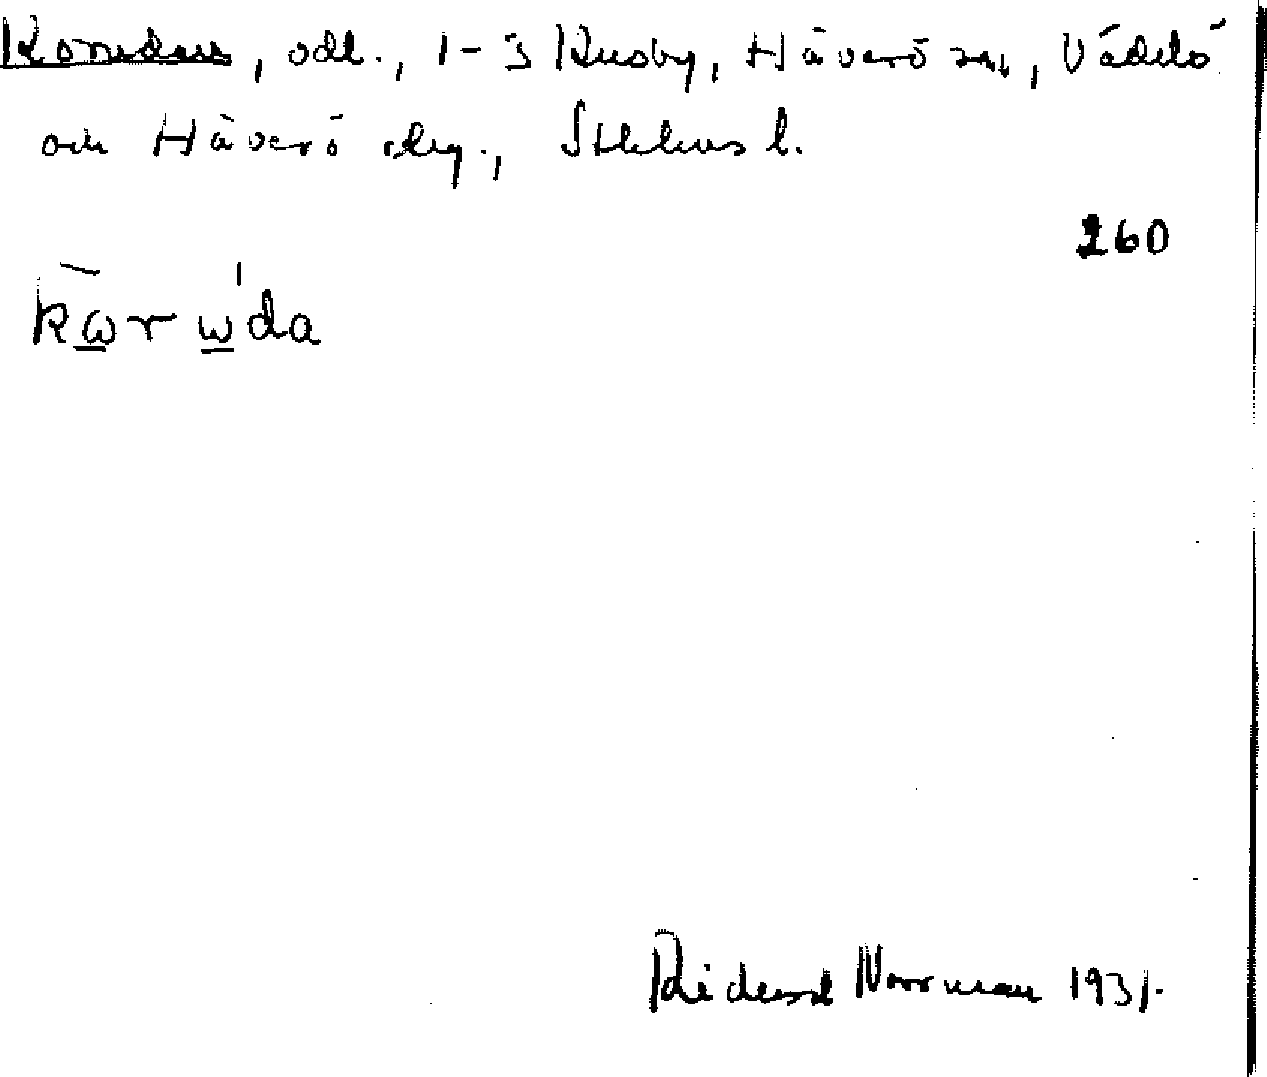 , odl., 1-3 Kusby, Häverö sn, Väddö
och Häverö skg., Sthlms l.
260
kωrωda
Rickard Norrman 1931.